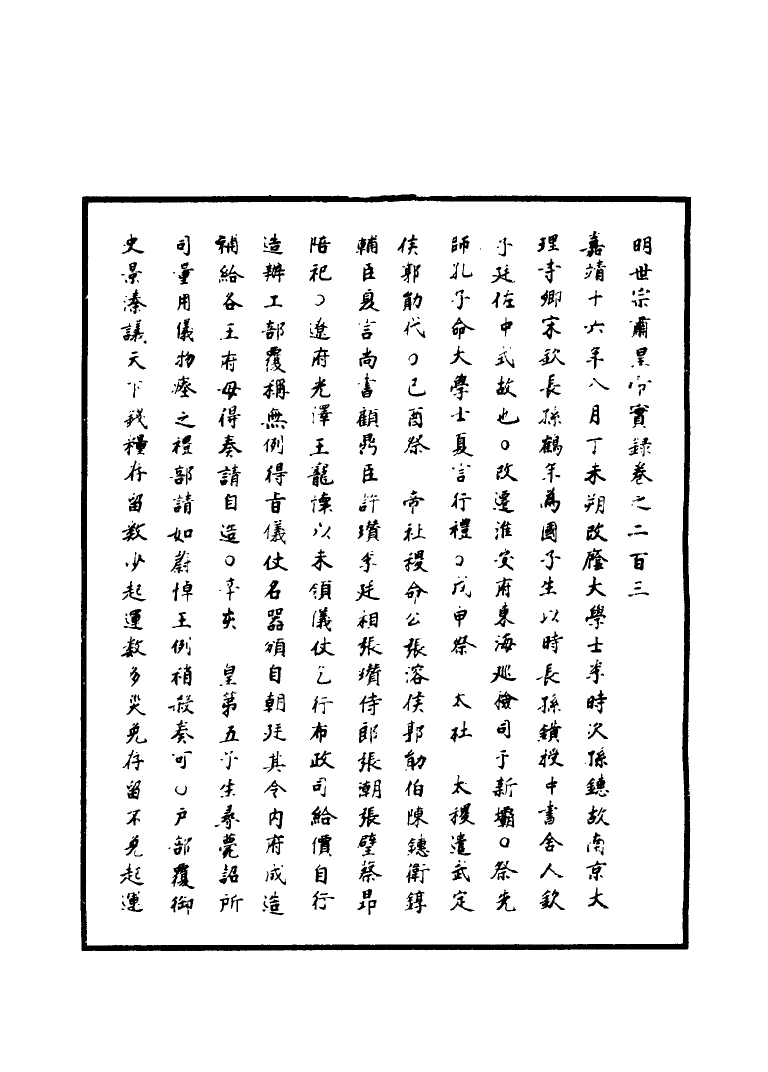 明世宗肅皇帝實錄卷之二百三
嘉靖十六年八月丁未朔改廕大學士李時次孫鏸故南京大
理寺卿宋欽長孫鶴年為國子生以時長孫鑌授中書舍人欽
子廷佐中式故也○改遷淮安府東海巡檢司于新壩○祭先
師孔子命大學士夏言行禮○戊申祭　太社　太稷遣武定
侯郭勛代○己酉祭　帝社稷命公張溶侯郭勛伯陳鏸衛錞
輔臣夏言尚書顧鼎臣許瓚李廷相張瓚侍郎張潮張璧蔡昂
陪祀○遼府光澤王寵㵾以未領儀仗乞行布政司給價自行
造辦工部覆稱無例得旨儀仗名器頒自朝廷其令內府成造
補給各王府毋得奏請自造○辛亥　皇第五子生尋薨詔所
司量用儀物瘞之禮部請如蔚悼王例稍殺奏可○戶部覆御
史景溱議天下錢糧存留數少起運數多災免存留不免起運